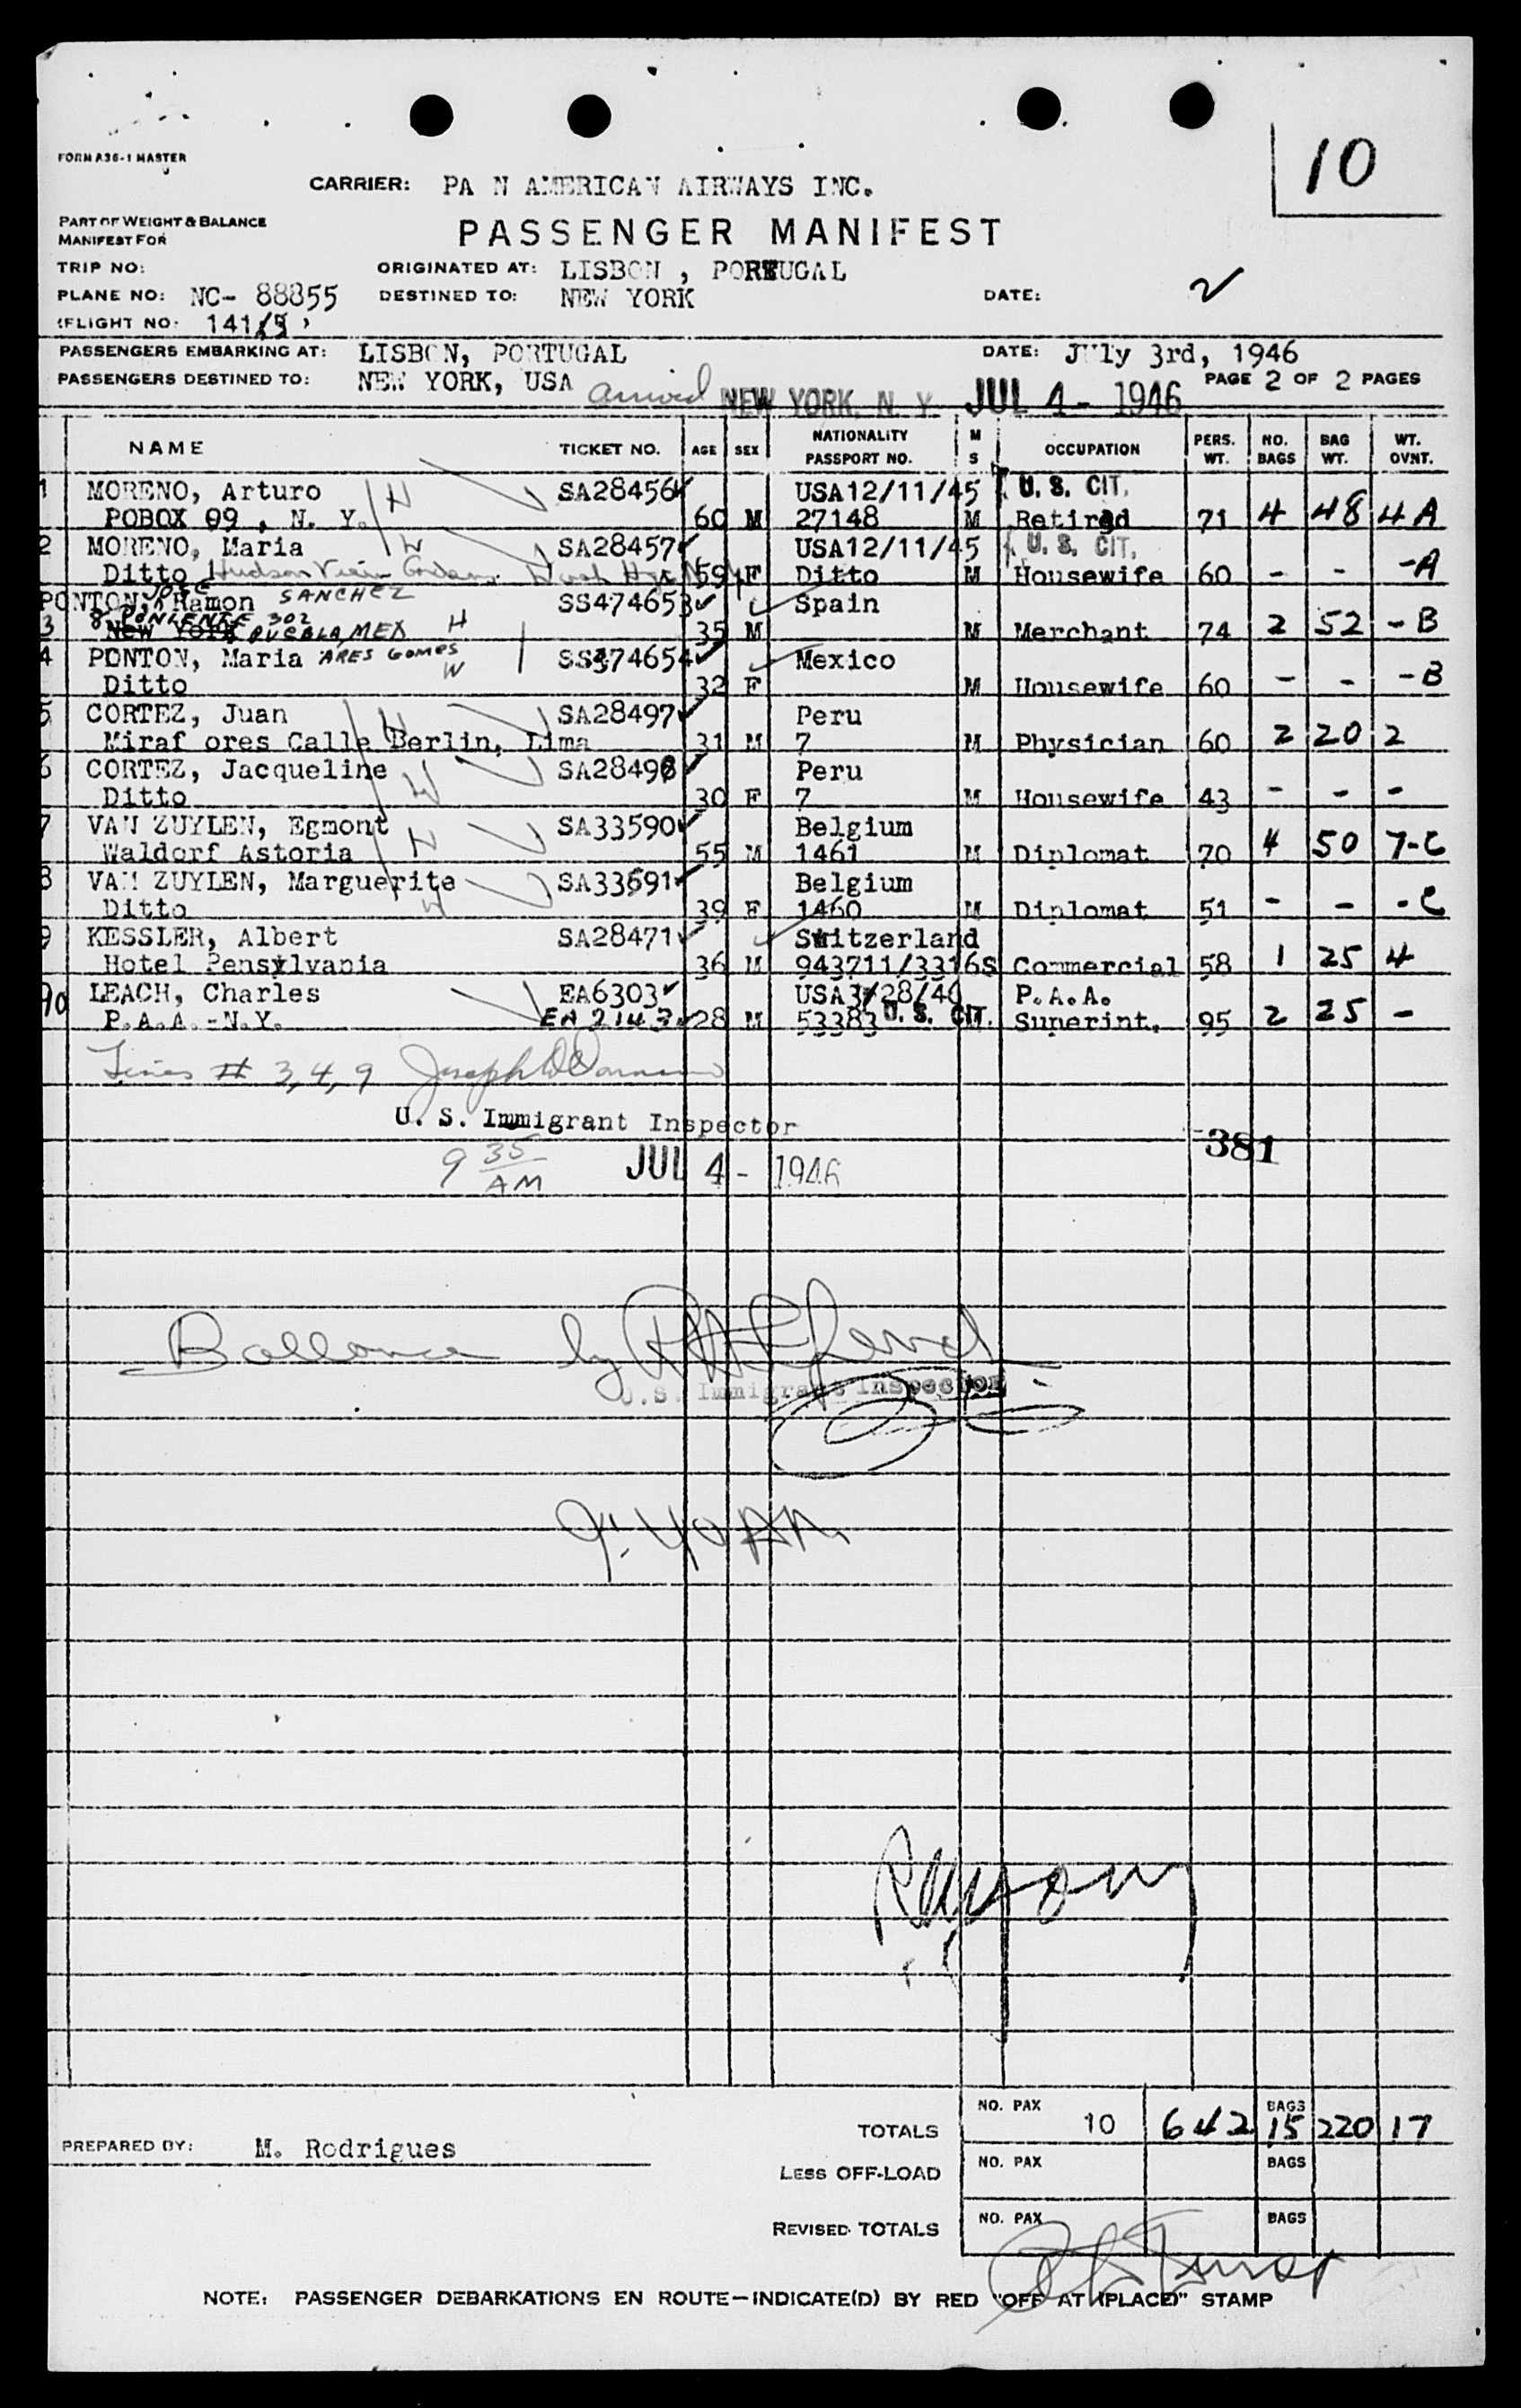 10
FORM A36-1 MASTER
CARRIER: PA N AMERICAN AIRWAYS INC.
PART OF WEIGHT & BALANCE
MANIFEST FOR
PASSENGER MANIFEST
TRIP NO: ORIGINATED AT: LISBON , PORTUGAL
PLANE NO: NC- 88855 DESTINED TO: NEW YORK DATE: 2
FLIGHT NO: 141/5
PASSENGERS EMBARKING AT: LISBON, PORTUGAL DATE: July 3rd, 1946
PASSENGERS DESTINED TO: NEW YORK, USA arrived NEW YORK, N. Y. JUL 4 - 1946 PAGE 2 OF 2 PAGES
NAME TICKET NO. AGE SEX NATIONALITY PASSPORT NO. M S OCCUPATION PERS. WT. NO. BAGS BAG WT. WT. OVNT.
1 MORENO, Arturo H SA28456 USA12/11/45 U. S. CIT.
POBOX 99 , N. Y. 60 M 27148 M Retired 71 4 48 4 A
2 MORENO, Maria W SA28457 USA12/11/45 U. S. CIT.
Ditto Hudson View Gardens 59 F Ditto M Housewife 60 - - -A
PONTON, JOSE Ramon SANCHEZ SS474653 Spain
3 8 PONIENTE 302 New York PUEBLA, MEX H 35 M M Merchant 74 2 52 - B
4 PONTON, Maria ARES GOMES SS474654 Mexico
Ditto W 32 F M Housewife 60 - - -B
5 CORTEZ, Juan H SA28497 Peru
Miraf ores Calle Berlin, Lima 31 M 7 M Physician 60 2 20 2
6 CORTEZ, Jacqueline W SA28498 Peru
Ditto 30 F 7 M Housewife 43 - - -
7 VAN ZUYLEN, Egmont H SA33590 Belgium
Waldorf Astoria 55 M 1461 M Diplomat 70 4 50 7-C
8 VAN ZUYLEN, Marguerite W SA33591 Belgium
Ditto 39 F 1460 M Diplomat 51 - - -C
9 KESSLER, Albert SA28471 Switzerland
Hotel Pensylvania 36 M 943711/3316S Commercial 58 1 25 4
10 LEACH, Charles EA6303 USA3/28/46 P.A.A.
P.A.A.-N.Y. EA 2143 28 M 53383 U. S. CIT. Superint. 95 2 25 -
Lines # 3, 4, 9 Joseph
U. S. Immigrant Inspector
381
9 35 AM JUL 4 - 1946
Ballance by
U.S. Immigrant Inspector
9:40 AM
TOTALS NO. PAX 10 642 BAGS 15 220 17
PREPARED BY: M. Rodrigues
LESS OFF-LOAD NO. PAX BAGS
REVISED TOTALS NO. PAX BAGS
NOTE: PASSENGER DEBARKATIONS EN ROUTE—INDICATE(D) BY RED "OFF AT (PLACE)" STAMP